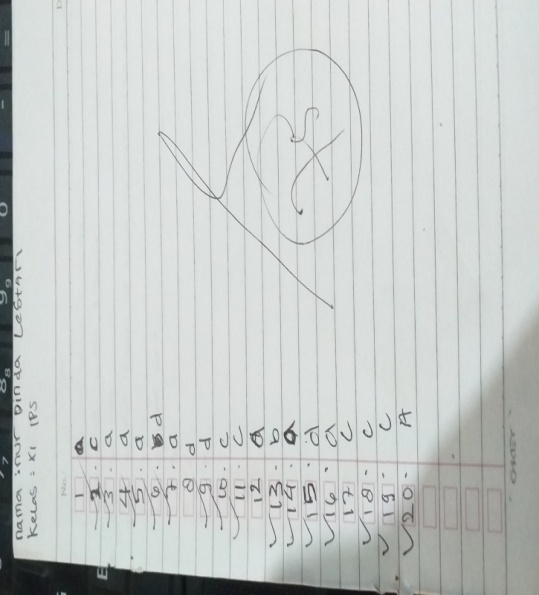 No.
nama : nur Dinda Lestari
Kelas : XI IPS
1 a
2 . c
3 . a
4 a
5 . a
6 . d
7 . a
8 d
9 . d
10 . c
11 c
12 a
13 . b
14 . a
15 . d
16 . a
17 c
18 . c
19 . c
20 . A